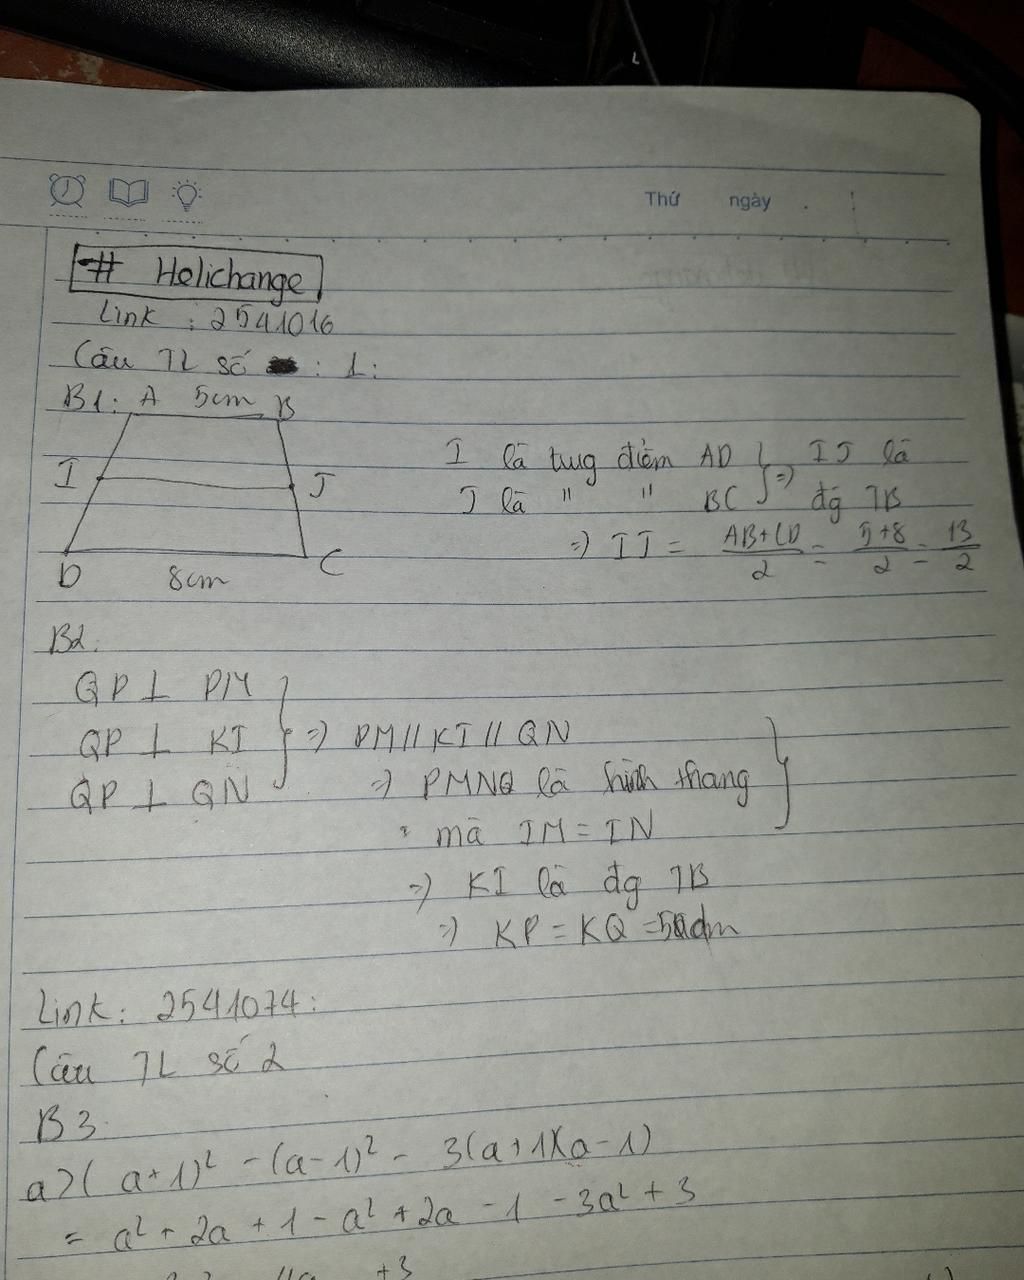 Thứ ngày
# Helichange
Link : 2541016
Câu TL số : 1:
B1: A 5cm B
I là tug điểm AD } => IJ là
I J
J là " " BC đg TB
=> IJ = AB+CD/2 = 5+8/2 = 13/2
D 8cm C
B2:
QP ⊥ PM
QP ⊥ KI } => PM // KI // QN
QP ⊥ QN => PMNQ là hình thang }
mà IM = IN
=> KI là đg TB
=> KP = KQ = 50dm
Link: 2541074:
Câu TL số 2
B3
a) (a+1)² - (a-1)² - 3(a+1)(a-1)
= a² + 2a + 1 - a² + 2a - 1 - 3a² + 3
+3